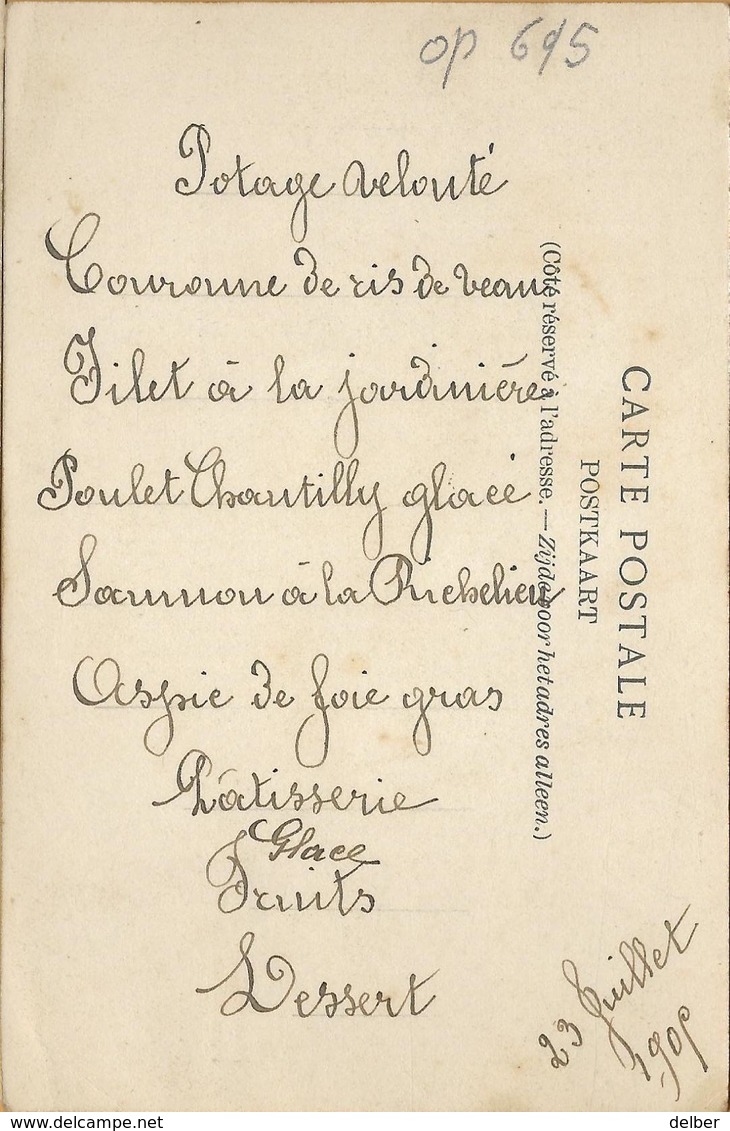 op 695
Potage velouté
Couronne de ris de veau
Filet à la jardinière
Poulet Chantilly glacé
Saumon à la Richelieu
Aspic de foie gras
Pâtisserie
Glace
Fruits
Dessert
23 Juillet
1905
CARTE POSTALE
POSTKAART
(Côté réservé à l'adresse. — Zijde voor het adres alleen.)
delcampe.net
delber